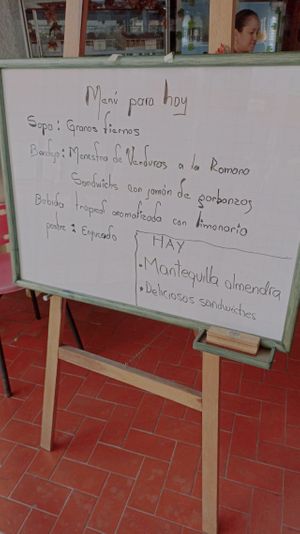 Menú para hoy
Sopa: Granos tiernos
Bandeja: Menestra de Verduras a la Romana
Sandwichs con jamón de garbanzos
Bebida tropical aromatizada con limonaria
postre: Enyucado
HAY
• Mantequilla almendra
• Deliciosos sandwiches